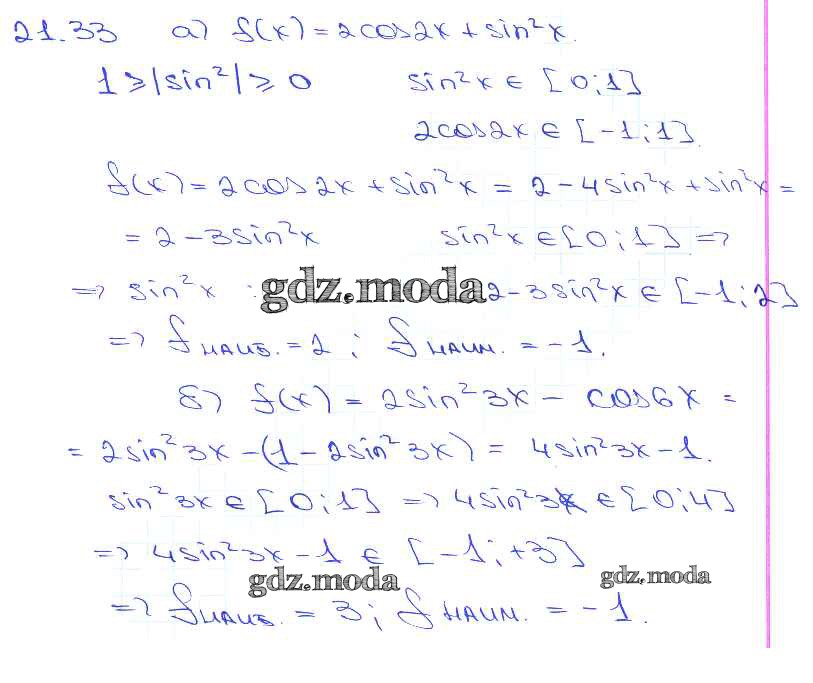 21.33 а) f(x) = 2cos2x + sin²x.
1 ≥ |sin²| ≥ 0 sin²x ∈ [0;1]
2cos2x ∈ [-1;1].
f(x) = 2cos2x + sin²x = 2 - 4sin²x + sin²x =
= 2 - 3sin²x sin²x ∈ [0;1] =>
=> sin²x gdz.moda 2-3sin²x ∈ [-1;2]
=> fнаиб. = 2; fнаим. = -1.
б) f(x) = 2sin²3x - cos6x =
= 2sin²3x - (1 - 2sin²3x) = 4sin²3x - 1.
sin²3x ∈ [0;1] => 4sin²3x ∈ [0;4]
=> 4sin²3x - 1 ∈ [-1;+3]
gdz.moda gdz.moda
=> fнаиб. = 3; fнаим. = -1.